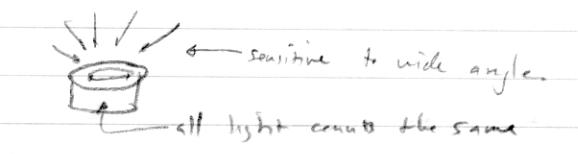 sensitive to wide angle.
all light counts the same